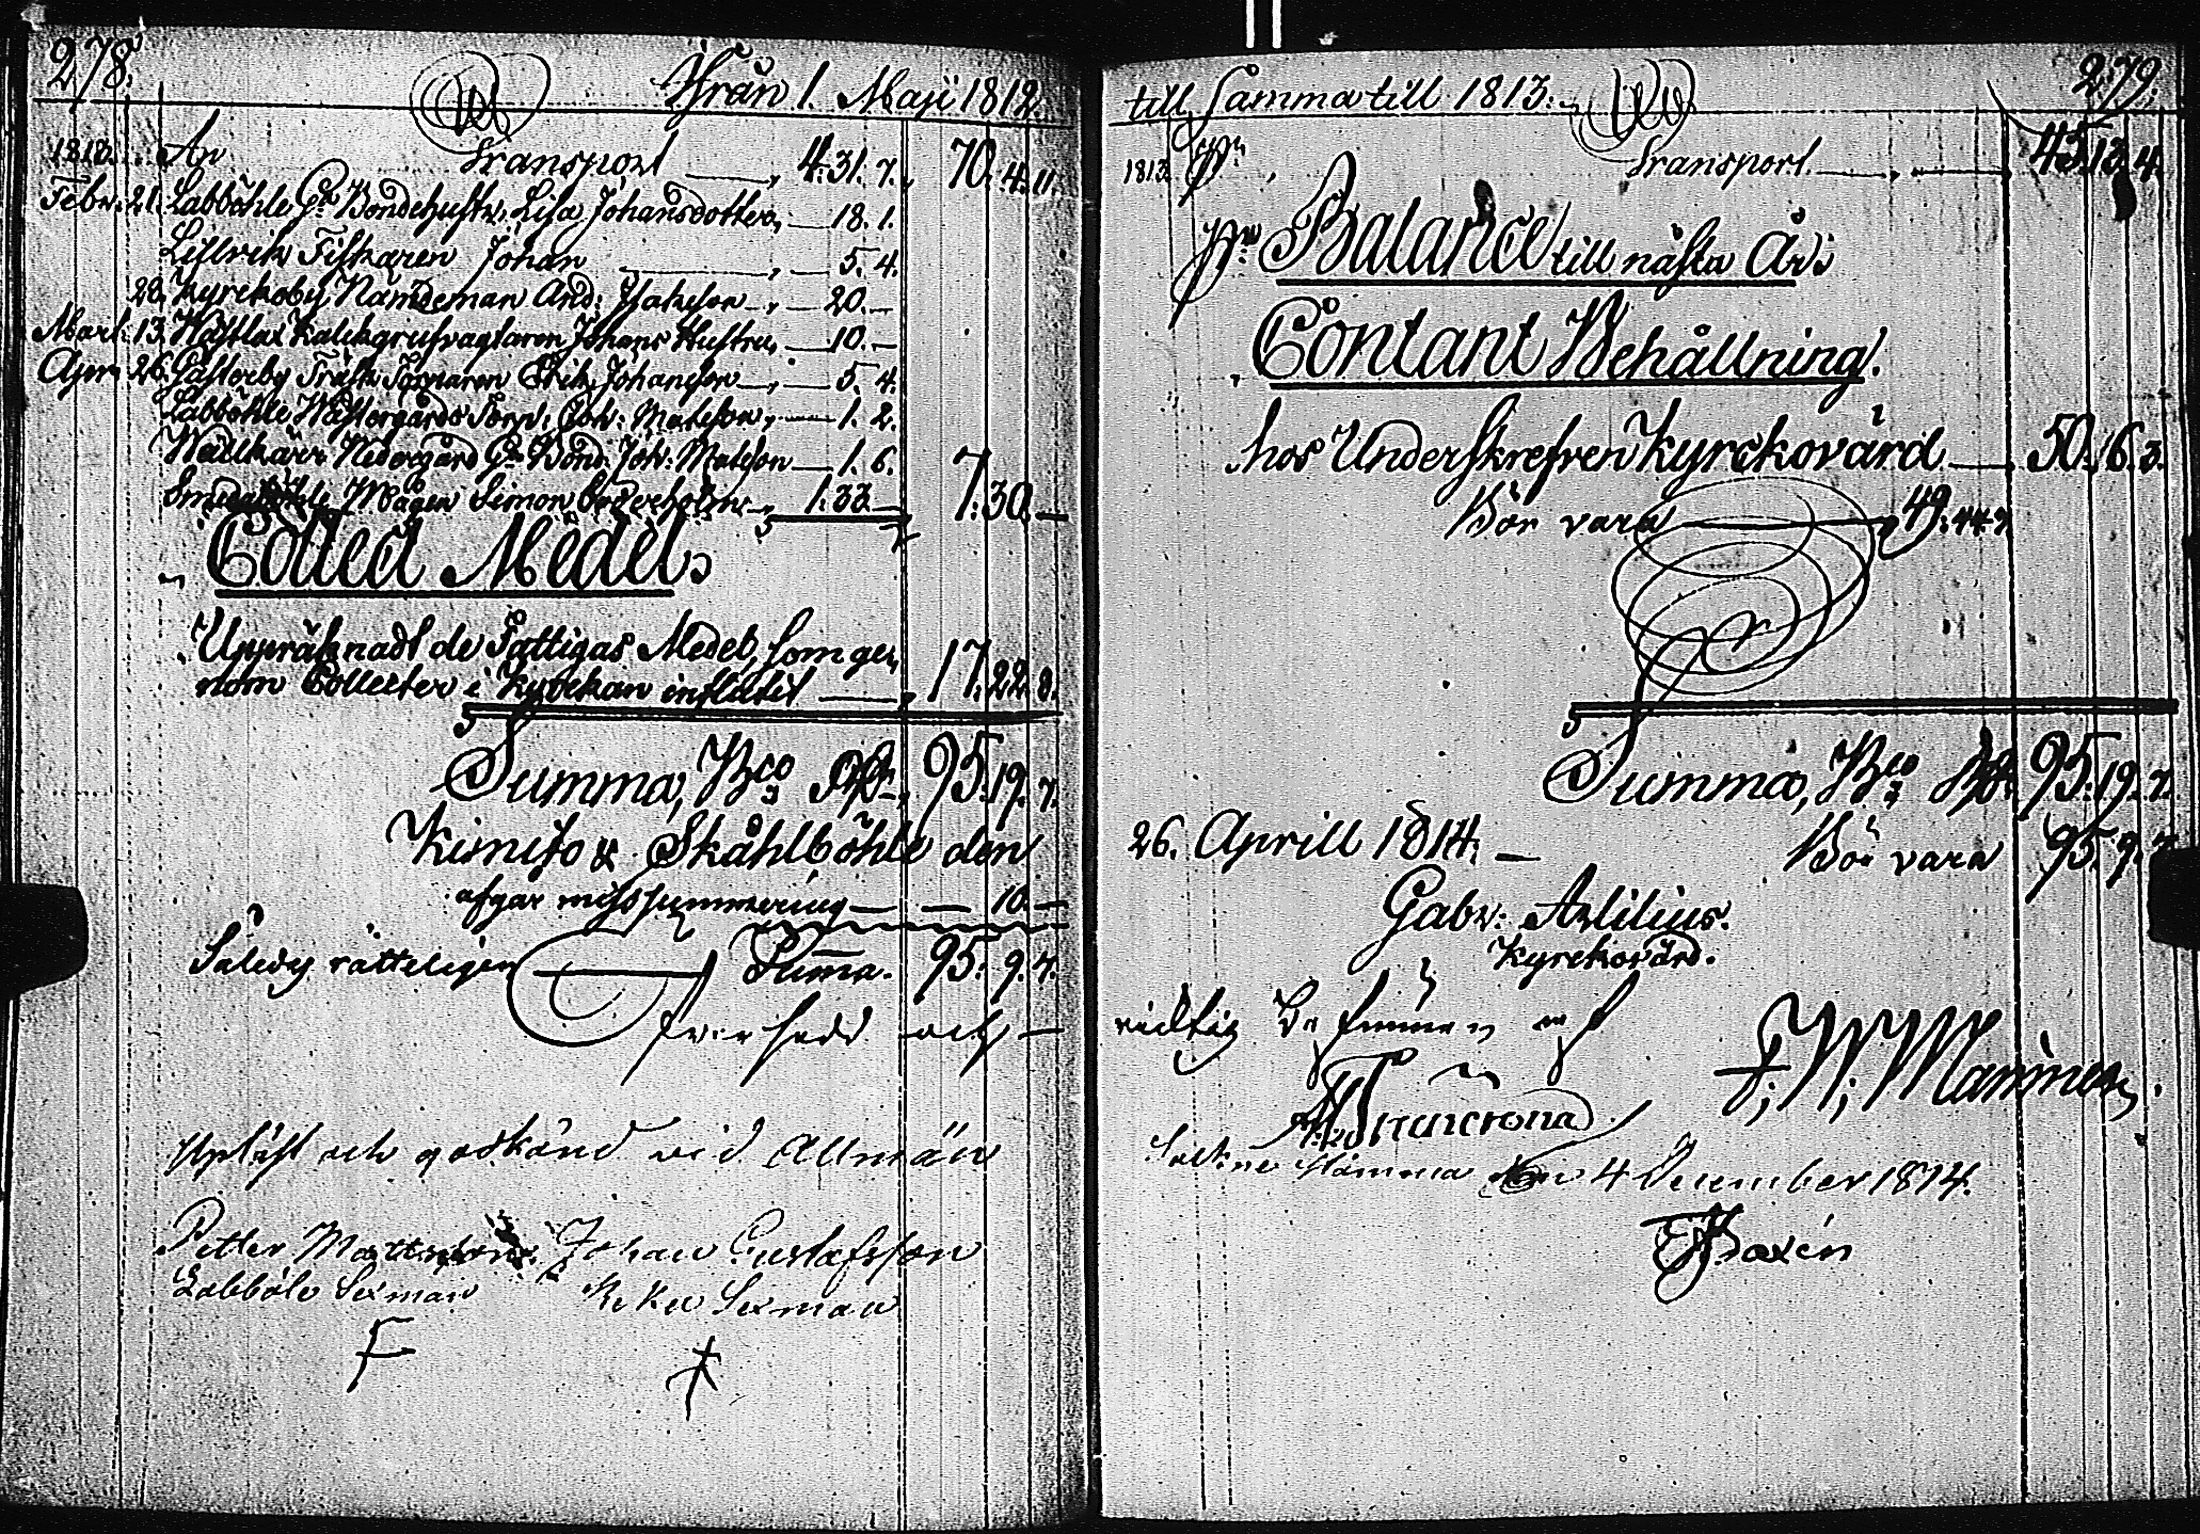 278.
Från 1. Maji 1812.
1813. An Transport 4.31.7. 70.4.11.
Febr: 21. Labböhle Gds Bondehustr: Lisa Johansdotter 18.1.
Fiskaren Johan 5.4.
28. Kyrckoby Nämdeman And: Isakson 20.—
Mart: 13. Wästlax Kalckgrufvagtaren Johans Hustru 10.—
Apr: 26. Gästerby Träsk Torparen Erik Johansson 5.4.
Labböhle Wästergårds Torp: Joh: Matsson 1.2.
Nedergård Gds Bond: Joh: Matsson 1.6.
Simon 1:33.— 7:30.—
Collect Medel.
Uppräknadt de Fattigas Medel, som ge-
nom Collecter i Kyrckan influtit 17.22.8.
Summa, Bco Rd 95.19.7.
Kimito & Skåhlböhle den
afgår missummering — — 10.—
Således rätteligen Summa. 95.9.7.
öfversedd och —
Upläst och godkänd vid Allmän
Petter Mattsson Johan Gustafsson
Labböle Sexman Reku Sexman
till samma till 1813. 279.
1813. Pr Transport 45.13.4.
Pr Balance till nästa År.
Contant Behållning.
hos Underskrefven Kyrckovärd 50.6.3.
Bör vara 49.44.3
Summa, Bco Rd 95.19.7.
26. Aprill 1814. — Bör vara 95.9.7
Gabr: Arlilius.
Kyrckovärd.
riktig befunnen af
F; W; Mannien.
Socknestämma den 4 December 1814.